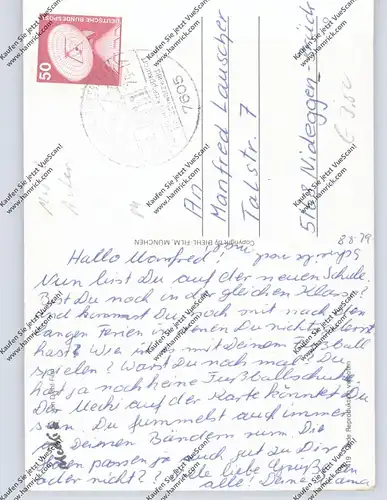 DEUTSCHE BUNDESPOST
50
7605
An
Manfred Lauscher
Talstr. 7
5168 Nideggen-Brück
Copyright by DIEHL-FILM, MÜNCHEN
8.8.79
Hallo Manfred!
Nun bist Du auf der neuen Schule.
Bist Du noch in der gleichen Klasse?
Und kommst Du noch mit nach den
langen Ferien in denen Du nicht gelernt
hast? Wie wars mit Deinem Fußball
spielen? Warst Du noch mal? Du
hast ja noch keine Fußballschuhe.
Der Mecki auf der Karte könnte Du
sein. Du fummelst auch immer
an Deinen Bändern rum. Die
passen ja auch gut zu Dir
oder nicht? Viele liebe Grüße an
alle! Deine
Kaufen Sie jetzt VueScan!
www.hamrick.com